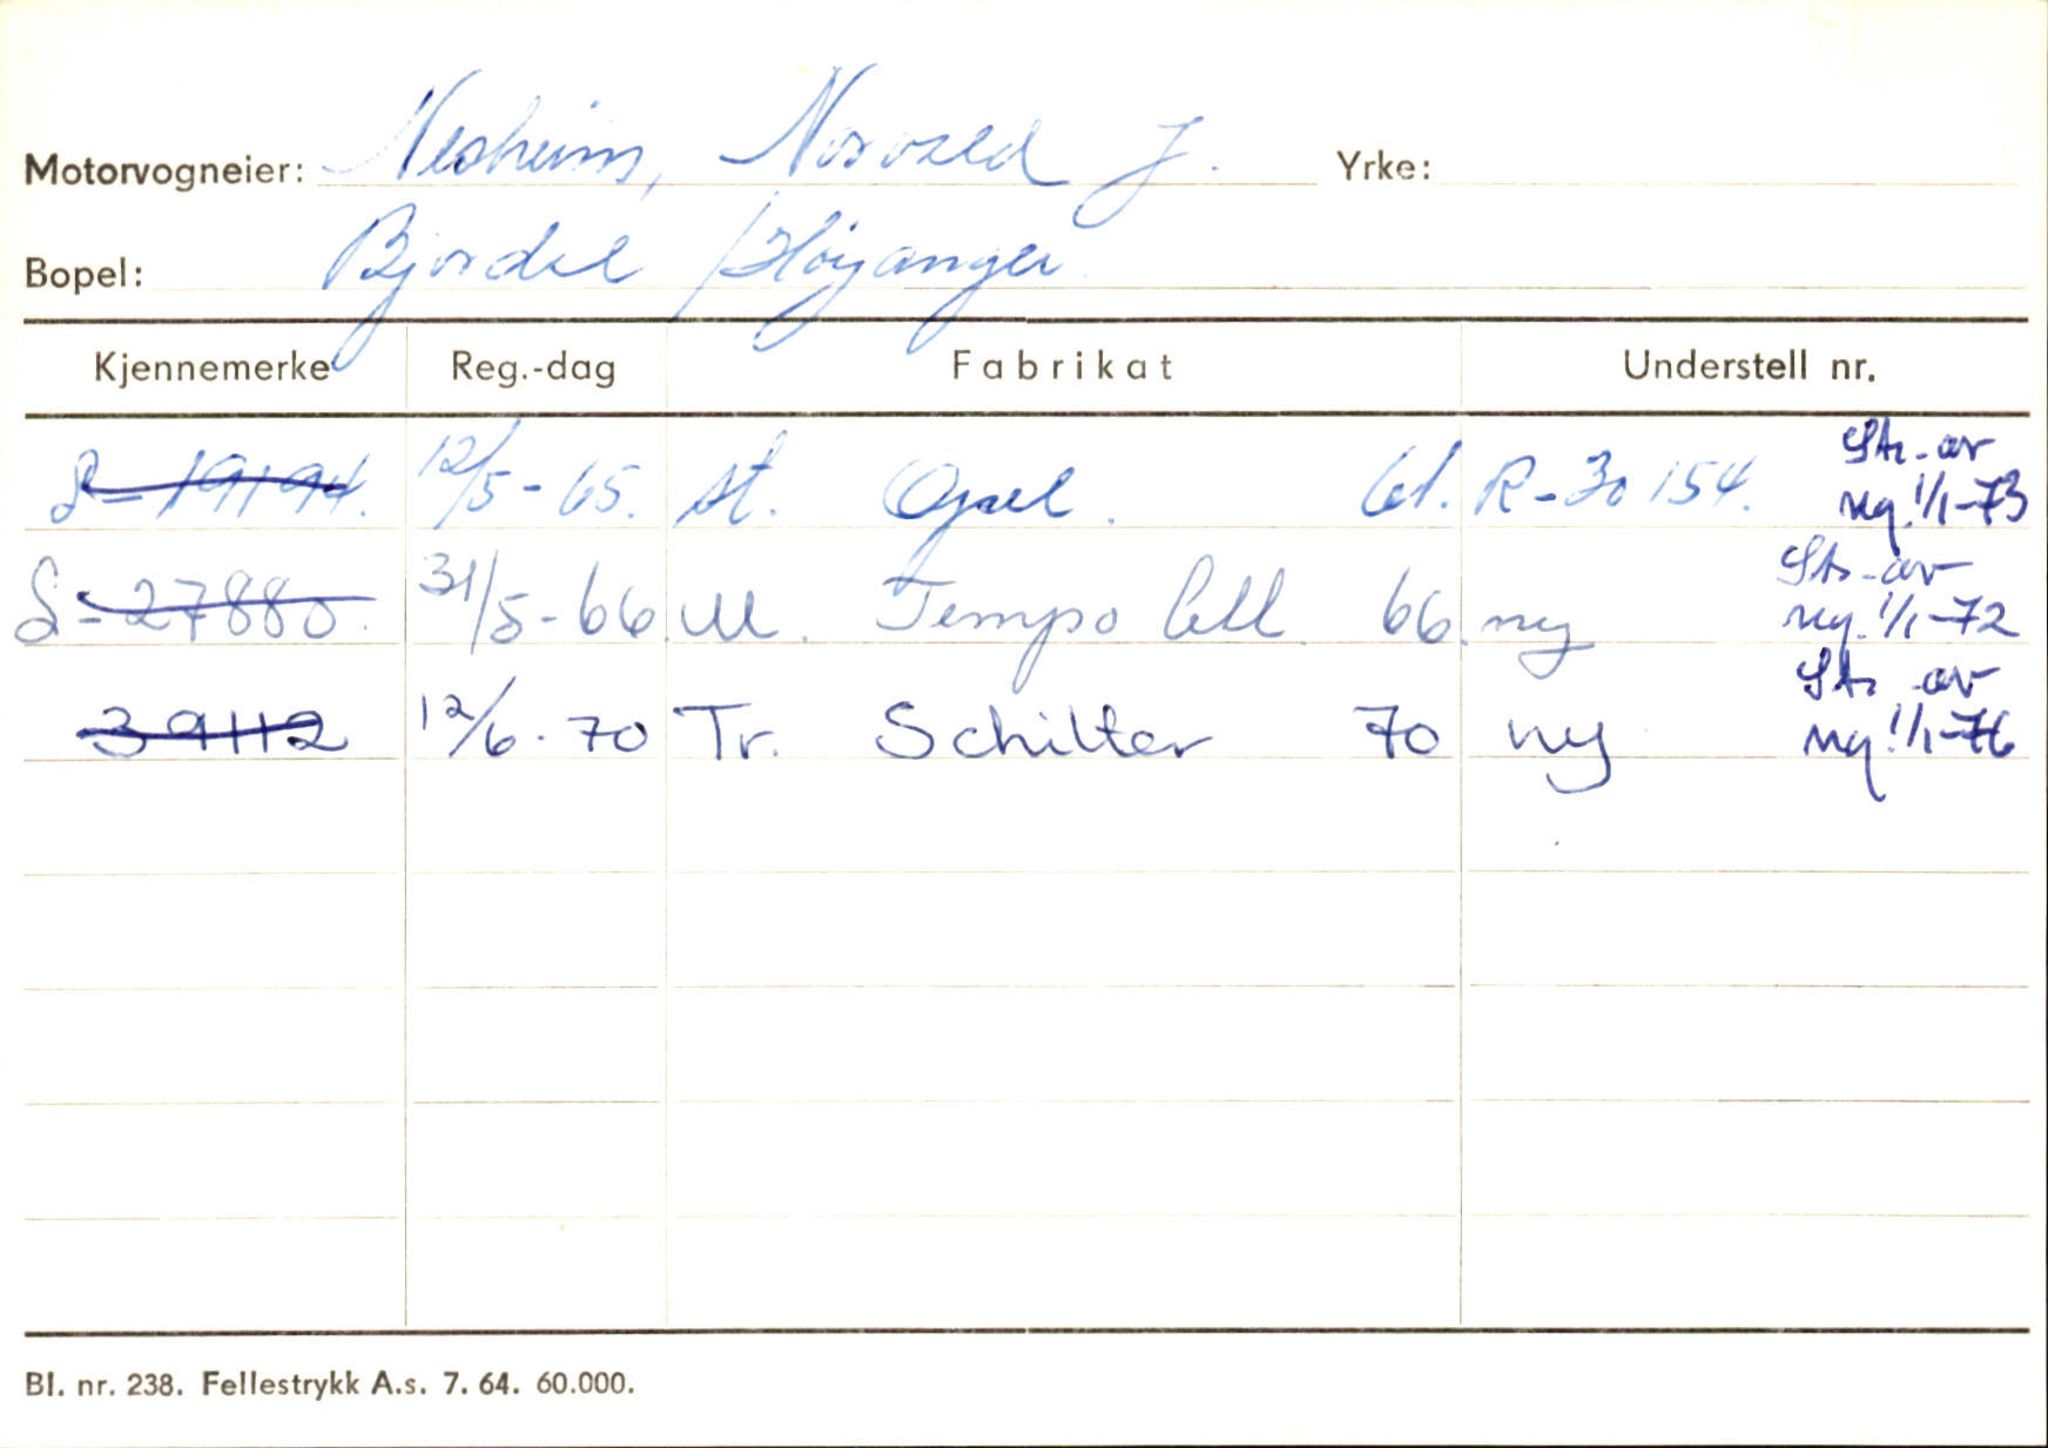 Motorvogneier: Nesheim, Norvald J. Yrke:
Bopel: Bjordal / Høyanger
Kjennemerke Reg.-dag Fabrikat Understell nr.
S-19194. 12/5-65. st. Opel. 61. R-30154. Str. av reg. 1/1-73
S-27880. 31/5-66. M. Tempo lett. 66. ny Str. av reg. 1/1-72
39112 12/6-70 Tr. Schilter 70 ny Str. av reg. 1/1-76
Bl. nr. 238. Fellestrykk A.s. 7. 64. 60.000.